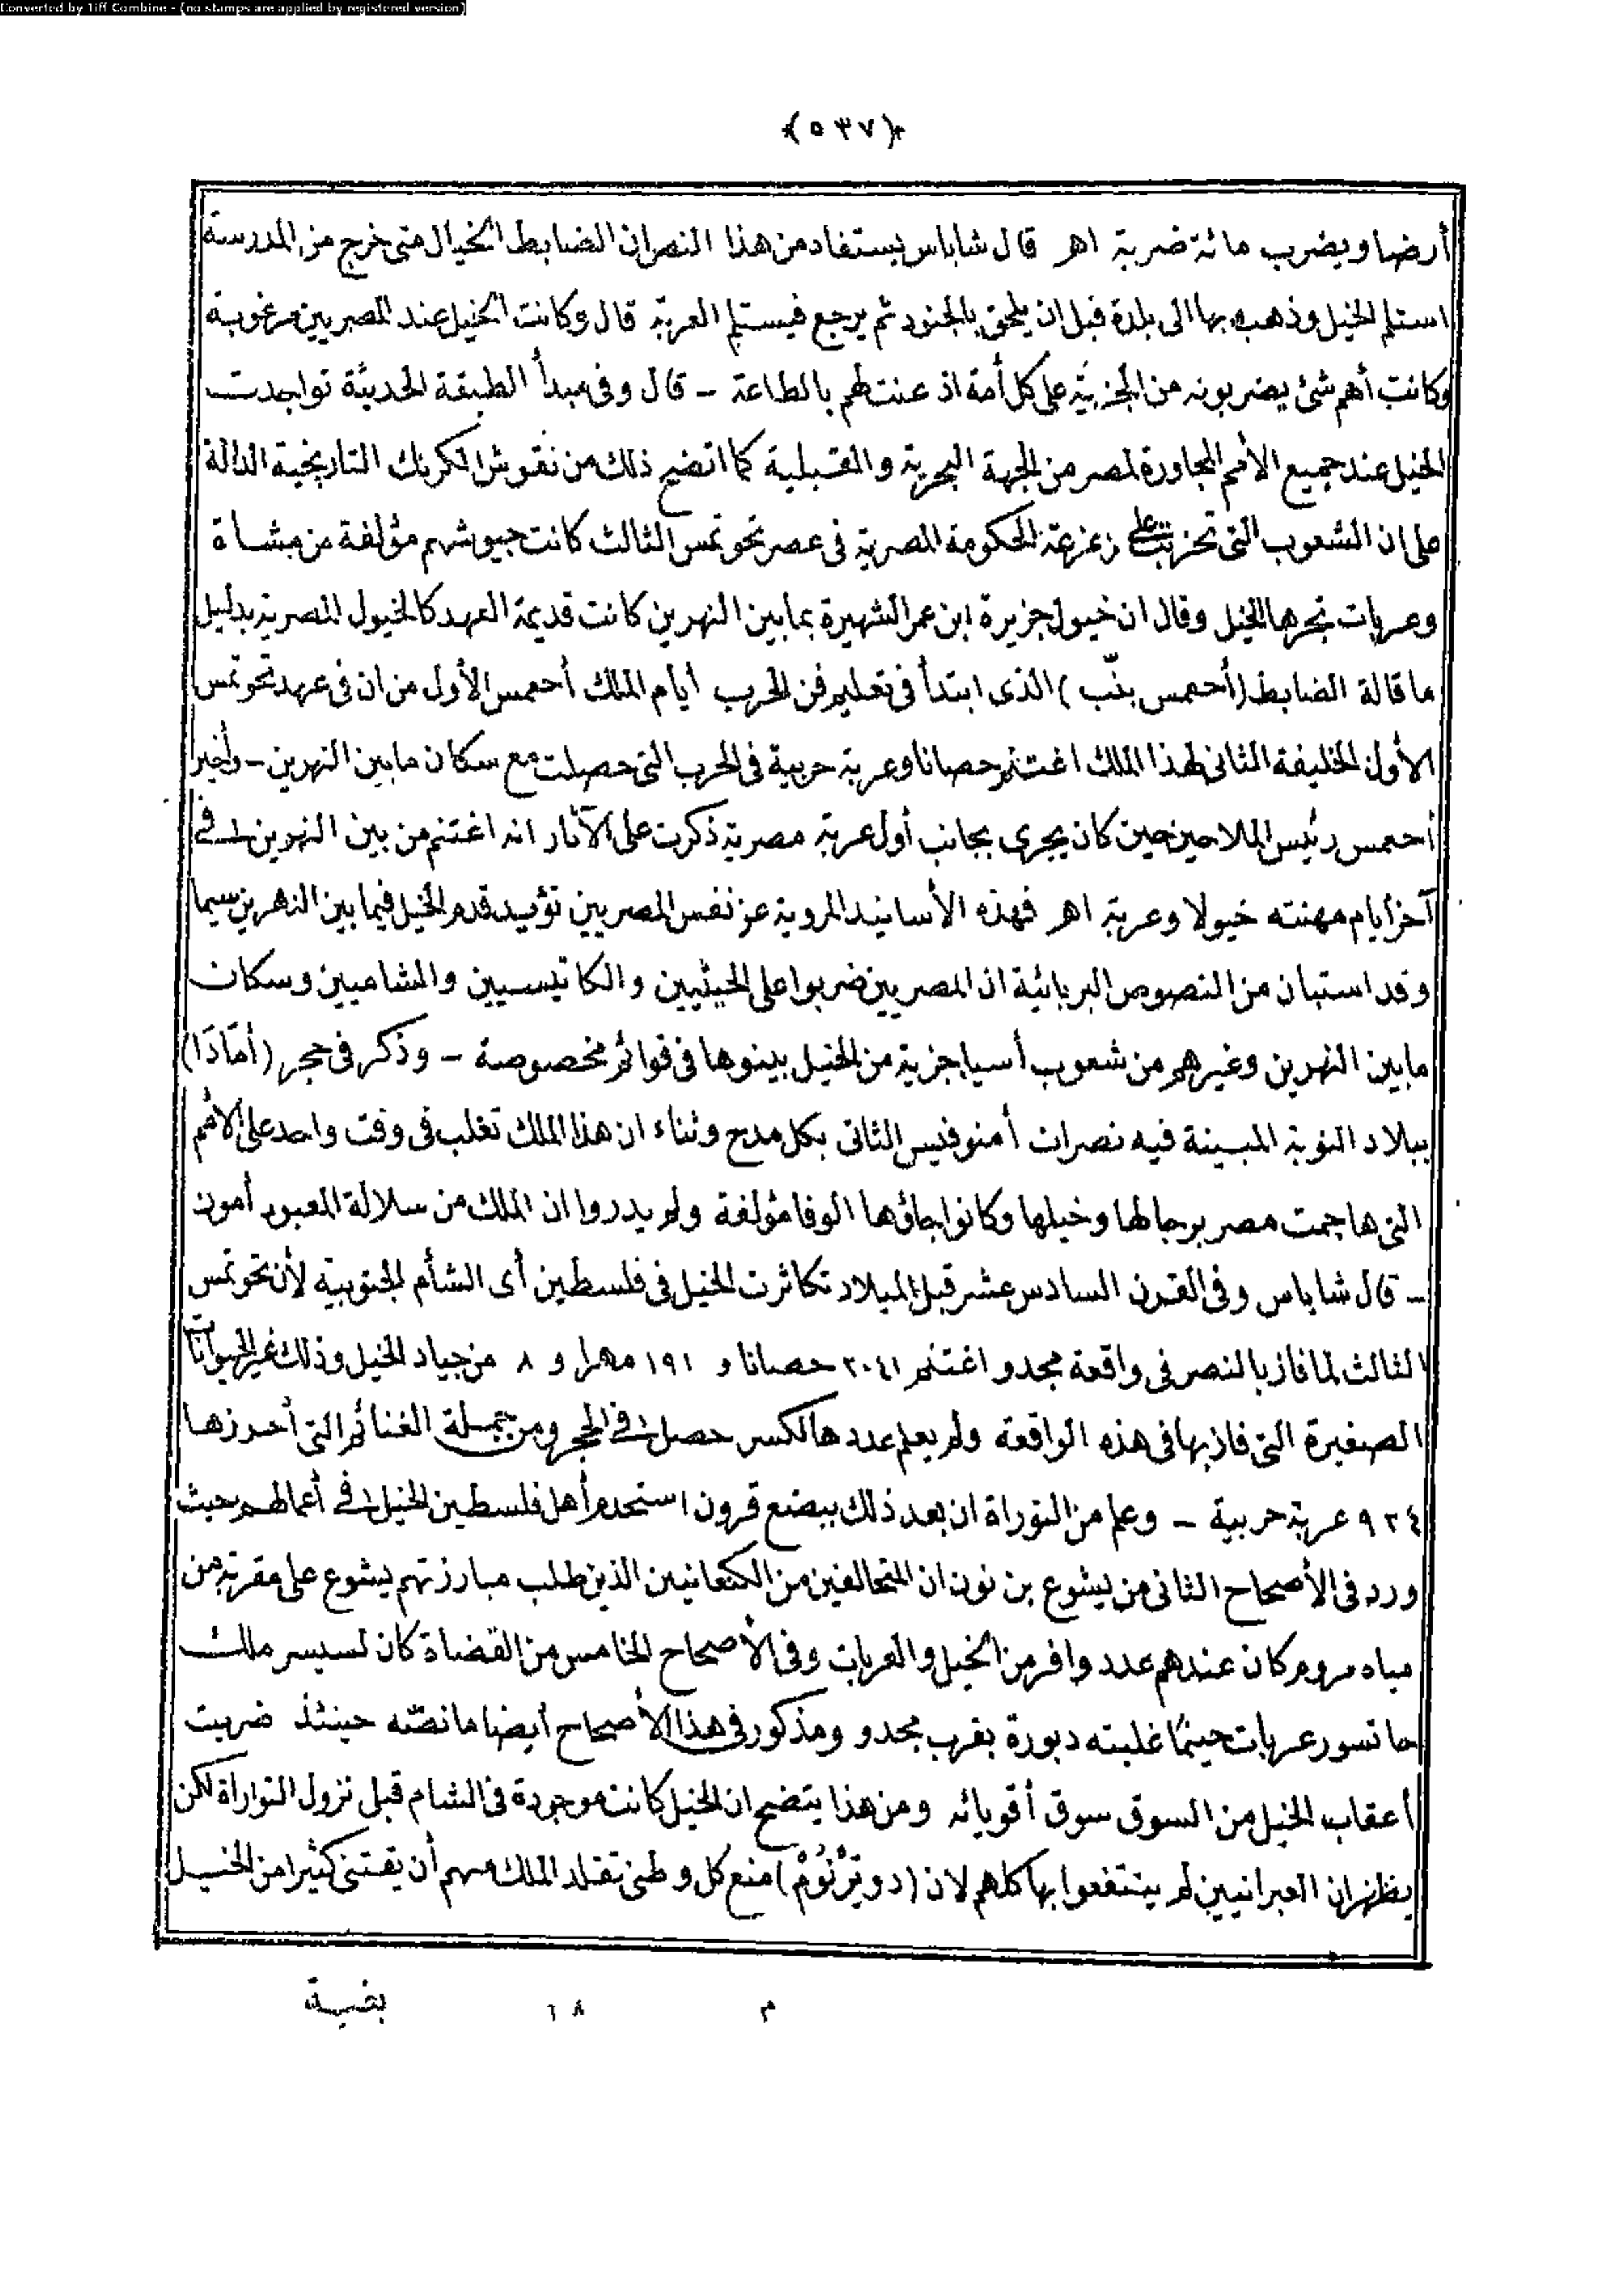 Converted by Tiff Combine - (no stamps are applied by registered version)
﴿٥٣٧﴾
أرضا ويضرب مائة ضربة اهـ قال شاباس يستفاد من هذا النص ان الضابط الخيال متى خرج من المدرسة
استلم الخيل وذهب بها الى بلدة قبل ان يلحق بالجنود ثم يرجع فيستلم العربة قال وكانت الخيل عند المصريين مرغوبة
وكانت أهم شئ يضربونه من الجزيّة على كل أمة اذ عنت لهم بالطاعة ـ قال وفى مبدأ الطبقة الحديثة تواجدت
الخيل عند جميع الأمم المجاورة لمصر من الجهة البحرية والقبلية كما اتضح ذلك من نقوش الكرنك التاريخية الدالة
على ان الشعوب التى تحزبت على زعزعة الحكومة المصرية فى عصر تحوتمس الثالث كانت جيوشهم مؤلفة من مشاة
وعربات تجرها الخيل وقال ان خيول جزيرة ابن عمر الشهيرة بما بين النهرين كانت قديمة العهد كالخيول المصرية بدليل
ما قالة الضابط (أحمس بنّب) الذى ابتدأ فى تعليم فن الحرب أيام الملك أحمس الأول من ان فى عهد تحوتمس
الأول الخليفة الثانى لهذا الملك اغتنم حصانا وعربة حربية فى الحرب التى حصلت مع سكان ما بين النهرين ـ وأخبر
أحمس رئيس الملاحين حين كان يجرى بجانب أول عربة مصرية ذكرت على الآثار انه اغتنم من بين النهرين فى
آخر أيام مهنته خيولا وعربة اهـ فهذه الأسانيد المروية عن نفس المصريين تؤيد قدم الخيل فيما بين النهرين سيما
وقد استبان من النصوص البربائية ان المصريين ضربوا على الحيثيين والكاتيسيين والشاميين وسكان
ما بين النهرين وغيرهم من شعوب أسيا جزية من الخيل بينوها فى قوائم مخصوصة ـ وذكر فى حجر (أمَادَا)
ببلاد النوبة المبينة فيه نصرات أمنوفيس الثانى بكل مدح وثناء ان هذا الملك تغلب فى وقت واحد على الأمم
التى هاجمت مصر برجالها وخيلها وكانوا جاؤها الوفا مؤلفة ولم يدروا ان الملك من سلالة المعبود أمون
ـ قال شاباس وفى القرن السادس عشر قبل الميلاد تكاثرت الخيل فى فلسطين أى الشأم الجنوبية لأن تحوتمس
الثالث لما فاز بالنصر فى واقعة مجدو اغتنم ٢٠٤١ حصانا و ١٩١ مهرا و ٨ من جياد الخيل وذلك غير الحيوانات
الصغيرة التى فاز بها فى هذه الواقعة ولم يعلم عددها لكسر حصل فى الحجر ومن جملة الغنائم التى أحرزها
٩٢٤ عربة حربية ـ وعلم من التوراة ان بعد ذلك ببضع قرون استخدم أهل فلسطين الخيل فى أعمالهم حيث
ورد فى الأصحاح الثانى من يشوع بن نون ان المتحالفين من الكنعانيين الذين طلب مبارزتهم يشوع على مقربة من
مياه مروم كان عندهم عدد وافر من الخيل والعربات وفى الأصحاح الخامس من القضاة كان لسيسر ملك
حاتسور عربات حينما غلبته دبورة بقرب مجدو ومذكور فى هذا الأصحاح أيضا ما نصّه حينئذ ضربت
أعقاب الخيل من السوق سوق أقويائه ومن هذا يتضح ان الخيل كانت موجودة فى الشام قبل نزول التوراة لكن
يظهر ان العبرانيين لم ينتفعوا بها كلهم لان (دوتِرْنُوُمْ) منع كل وطنى تقلد الملك منهم أن يقتنى كثيرا من الخيل
م ٦٨ بغية